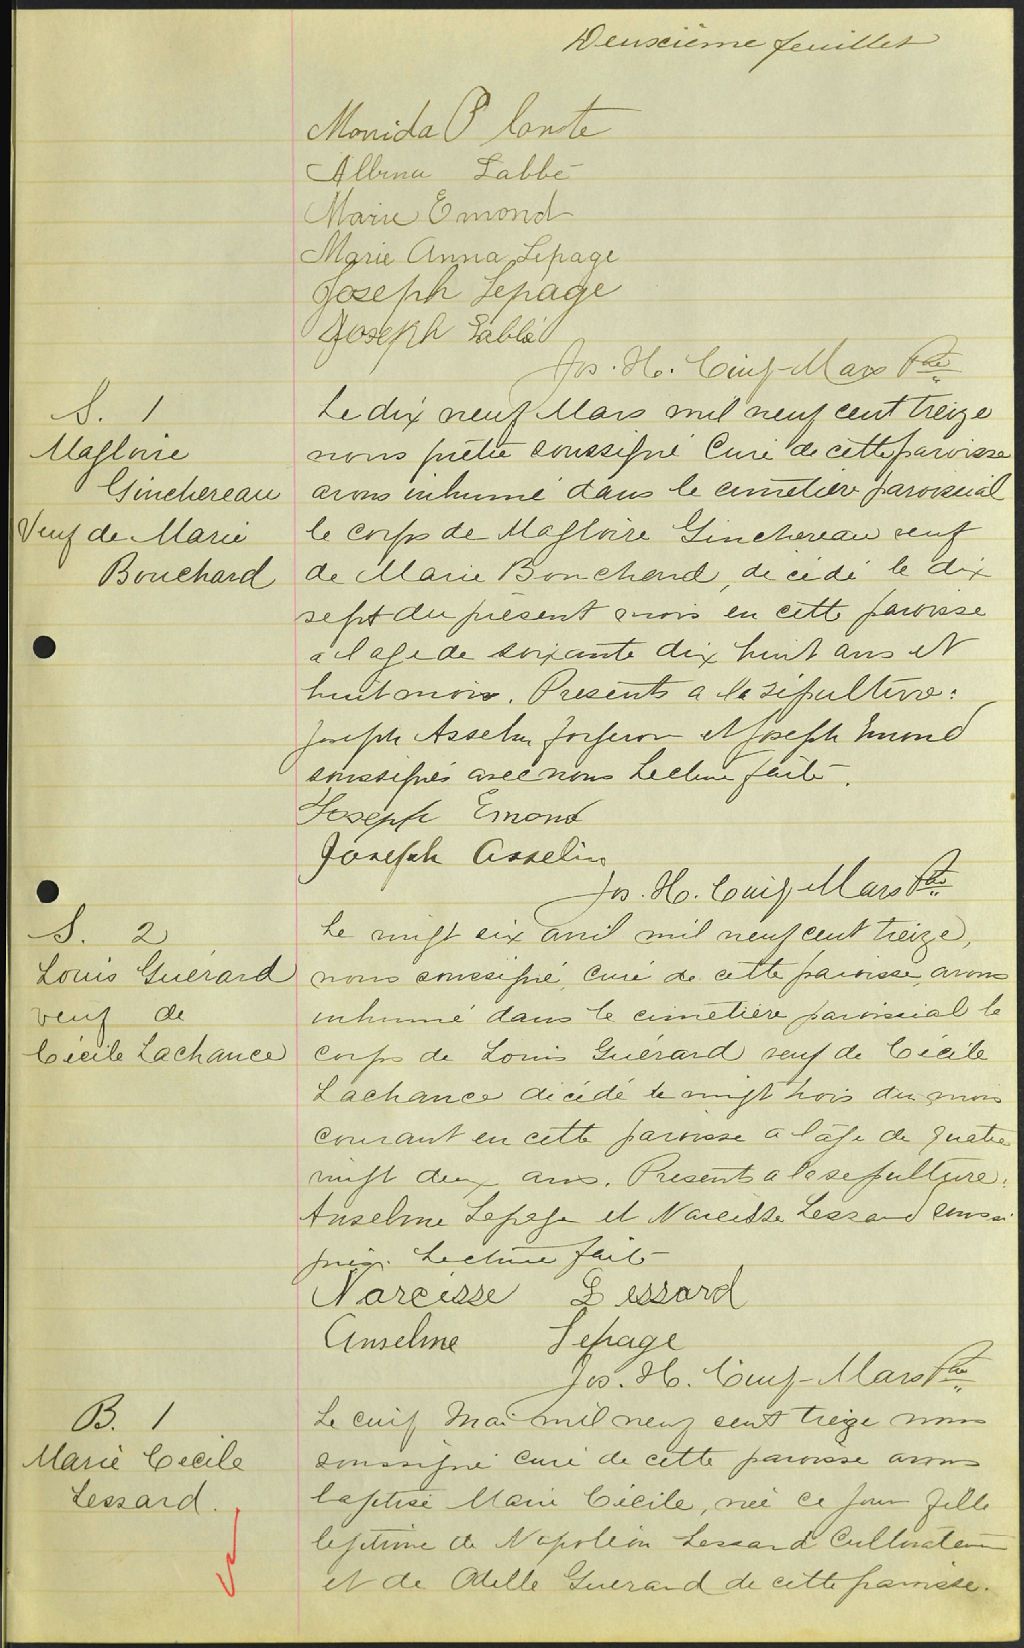 Deuxième feuillet
Monida P
Albina Labbé
Marie Emond
Marie Anna Lepage
Joseph Lepage
Joseph Labbé
Jos. H. Cinq-Mars Ptre
S. 1
Magloire
Ginchereau
Veuf de Marie
Bouchard
Le dix neuf Mars mil neuf cent treize
nous prêtre soussigné Curé de cette paroisse
avons inhumé dans le cimetière paroissial
le corps de Magloire Ginchereau veuf
de Marie Bouchard, décédé le dix
sept du présent mois en cette paroisse
a l age de soixante dix huit ans et
huit mois. Présents a la sépulture:
Joseph Asselin forgeron et Joseph Emond
soussignés avec nous Lecture faite.
Joseph Emond
Joseph Asselin
Jos. H. Cinq-Mars Ptre
S. 2
Louis Guérard
veuf de
Cécile Lachance
Le vingt six avril mil neuf cent treize,
nous soussigné, curé de cette paroisse, avons
inhumé dans le cimetière paroissial le
corps de Louis Guérard veuf de Cécile
Lachance décédé le vingt trois du mois
courant en cette paroisse a l'âge de quatre
vingt deux ans. Présents a la sepulture:
Anselme Lepage et Narcisse Lessard soussi
gnés. Lecture faite
Narcisse Lessard
Anselme Lepage
Jos. H. Cinq-Mars Ptre
B. 1
Marie Cécile
Lessard.
Le cinq Mai mil neuf cent treize nous
soussigné curé de cette paroisse avons
baptisé Marie Cécile, née ce jour fille
légitime de Napoléon Lessard Cultivateur
et de Odelle Guérard de cette paroisse.